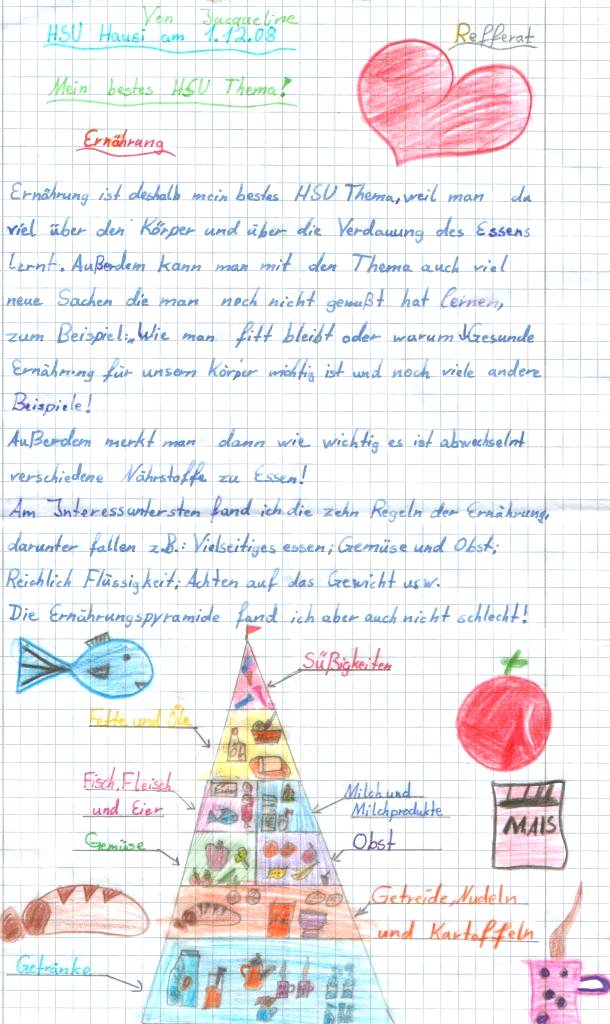 Von Jacqueline
HSU Hausi am 1.12.08
Refferat
Mein bestes HSU Thema!
Ernährung
Ernährung ist deshalb mein bestes HSU Thema, weil man da
viel über den Körper und über die Verdauung des Essens
lernt. Außerdem kann man mit den Thema auch viel
neue Sachen die man noch nicht gewußt hat lernen,
zum Beispiel: Wie man fitt bleibt oder warum Gesunde
Ernährung für unsern Körper wichtig ist und noch viele andere
Beispiele!
Außerdem merkt man dann wie wichtig es ist abwechselnt
verschiedene Nährstoffe zu Essen!
Am Interessuntersten fand ich die zehn Regeln der Ernährung,
darunter fallen z.B.: Vielseitiges essen; Gemüse und Obst;
Reichlich Flüssigkeit; Achten auf das Gewicht usw.
Die Ernährungspyramide fand ich aber auch nicht schlecht!
Süßigkeiten
Fette und Öle
Fisch, Fleisch
und Eier
Milch und
Milchprodukte
MAIS
Gemüse
Obst
Getreide, Nudeln
und Kartoffeln
Getränke